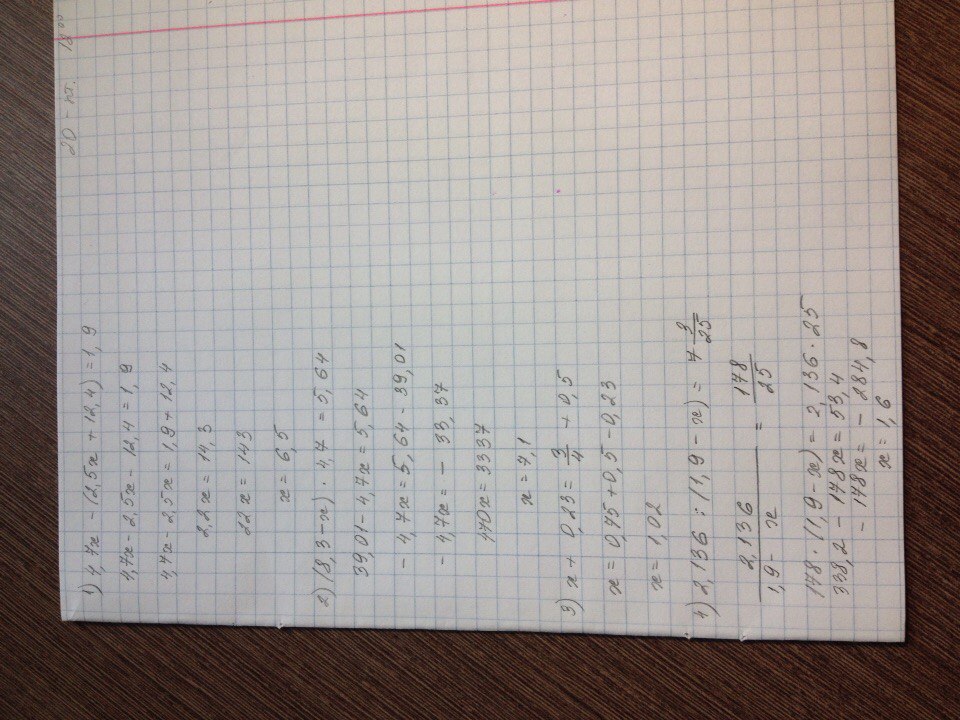 20 - пт. 18⁰⁰
1) 4,7x - (2,5x + 12,4) = 1,9
4,7x - 2,5x - 12,4 = 1,9
4,7x - 2,5x = 1,9 + 12,4
2,2x = 14,3
22x = 143
x = 6,5
2) (8,3 - x) · 4,7 = 5,64
39,01 - 4,7x = 5,64
- 4,7x = 5,64 - 39,01
- 4,7x = - 33,37
470x = 3337
x = 7,1
3) x + 0,23 = 3/4 + 0,5
x = 0,75 + 0,5 - 0,23
x = 1,02
4) 2,136 : (1,9 - x) = 7 3/25
2,136 / 1,9 - x = 178 / 25
178 · (1,9 - x) = 2,136 · 25
338,2 - 178x = 53,4
- 178x = - 284,8
x = 1,6